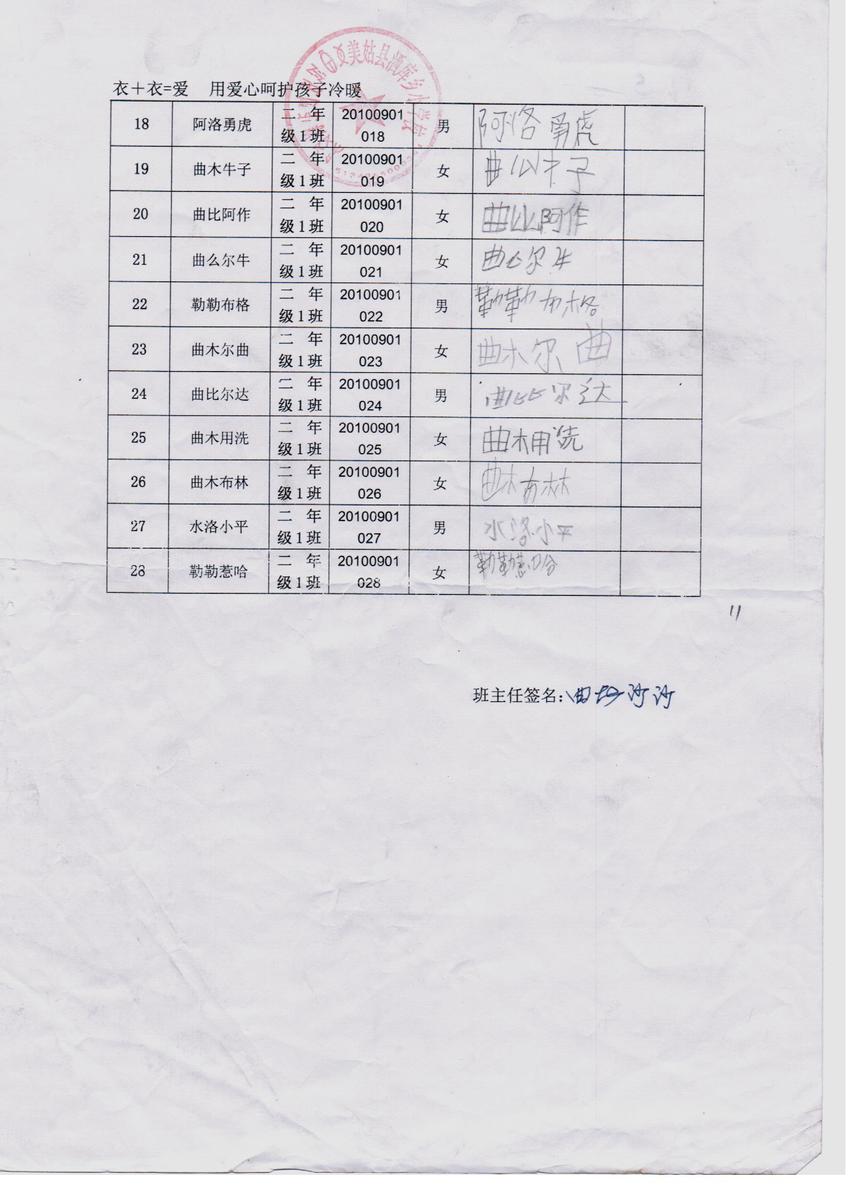 衣＋衣=爱 用爱心呵护孩子冷暖
美姑县洒库乡小学校
18 阿洛勇虎 二年级1班 20100901018 男 阿洛勇虎
19 曲木牛子 二年级1班 20100901019 女 曲么牛子
20 曲比阿作 二年级1班 20100901020 女 曲比阿作
21 曲么尔牛 二年级1班 20100901021 女 曲么尔牛
22 勒勒布格 二年级1班 20100901022 男 勒勒布格
23 曲木尔曲 二年级1班 20100901023 女 曲木尔曲
24 曲比尔达 二年级1班 20100901024 男 曲比尔达
25 曲木用洗 二年级1班 20100901025 女 曲木用洗
26 曲木布林 二年级1班 20100901026 女 曲木布林
27 水洛小平 二年级1班 20100901027 男 水洛小平
28 勒勒惹哈 二年级1班 20100901028 女 勒勒惹哈
11
班主任签名：曲比沙沙